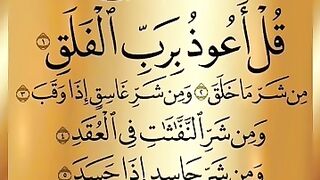 قُلْ أَعُوذُ بِرَبِّ ٱلْفَلَقِ ١
مِن شَرِّ مَا خَلَقَ ٢ وَمِن شَرِّ غَاسِقٍ إِذَا وَقَبَ ٣
وَمِن شَرِّ ٱلنَّفَّـٰثَـٰتِ فِى ٱلْعُقَدِ ٤
وَمِن شَرِّ حَاسِدٍ إِذَا حَسَدَ ٥